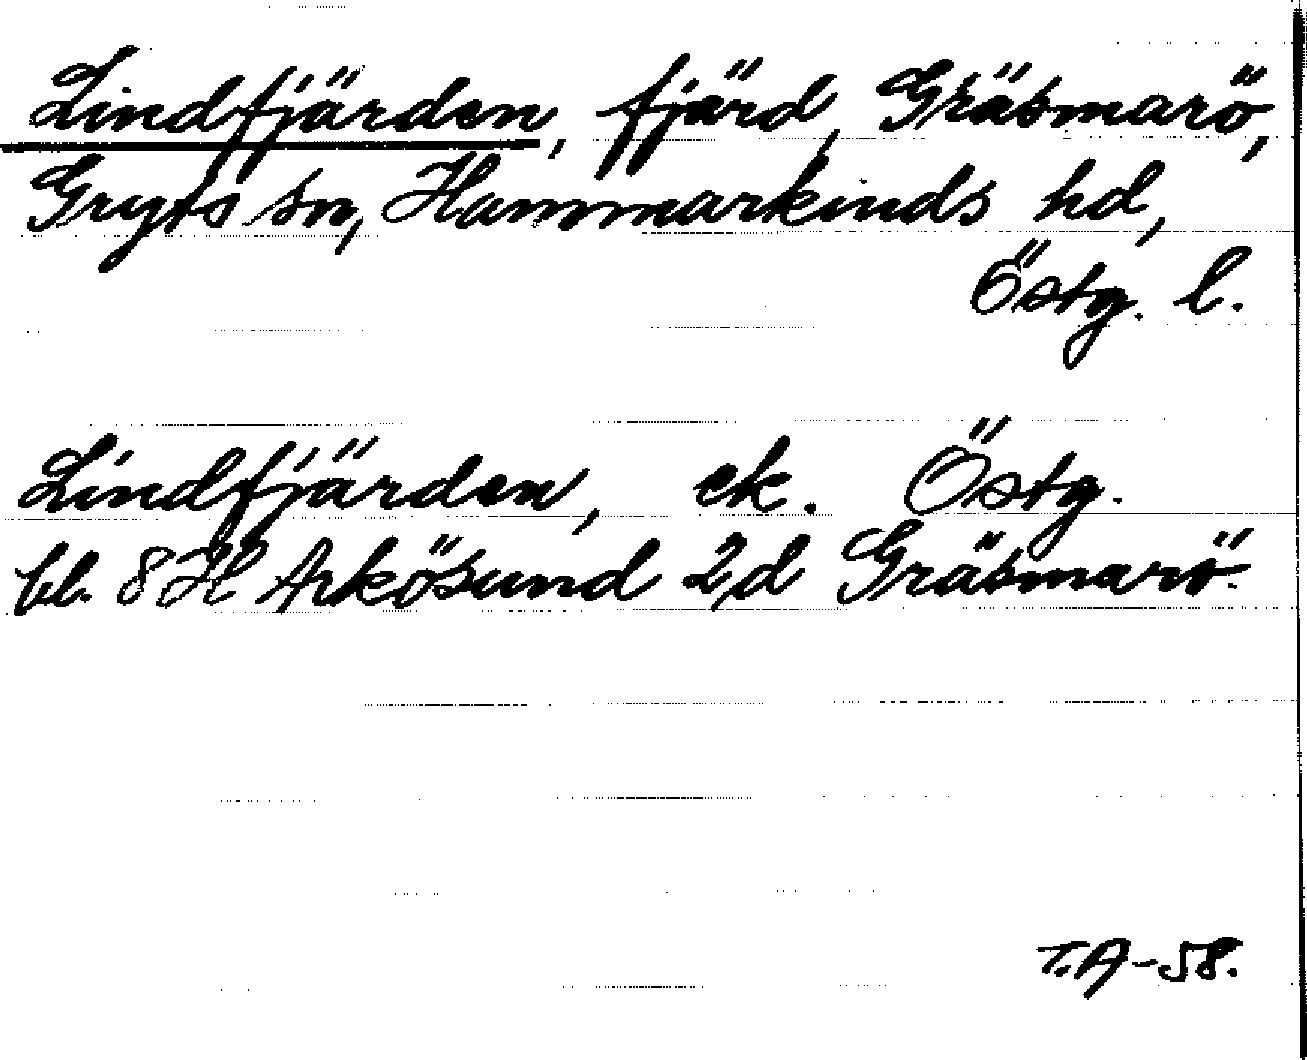 Lindfjärden, fjärd, Gräsmarö,
Gryts sn, Hammarkinds hd,
Östg. l.
Lindfjärden, ek. Östg.
bl. 8 H Arkösund 2d Gräsmarö.
T.A-58.